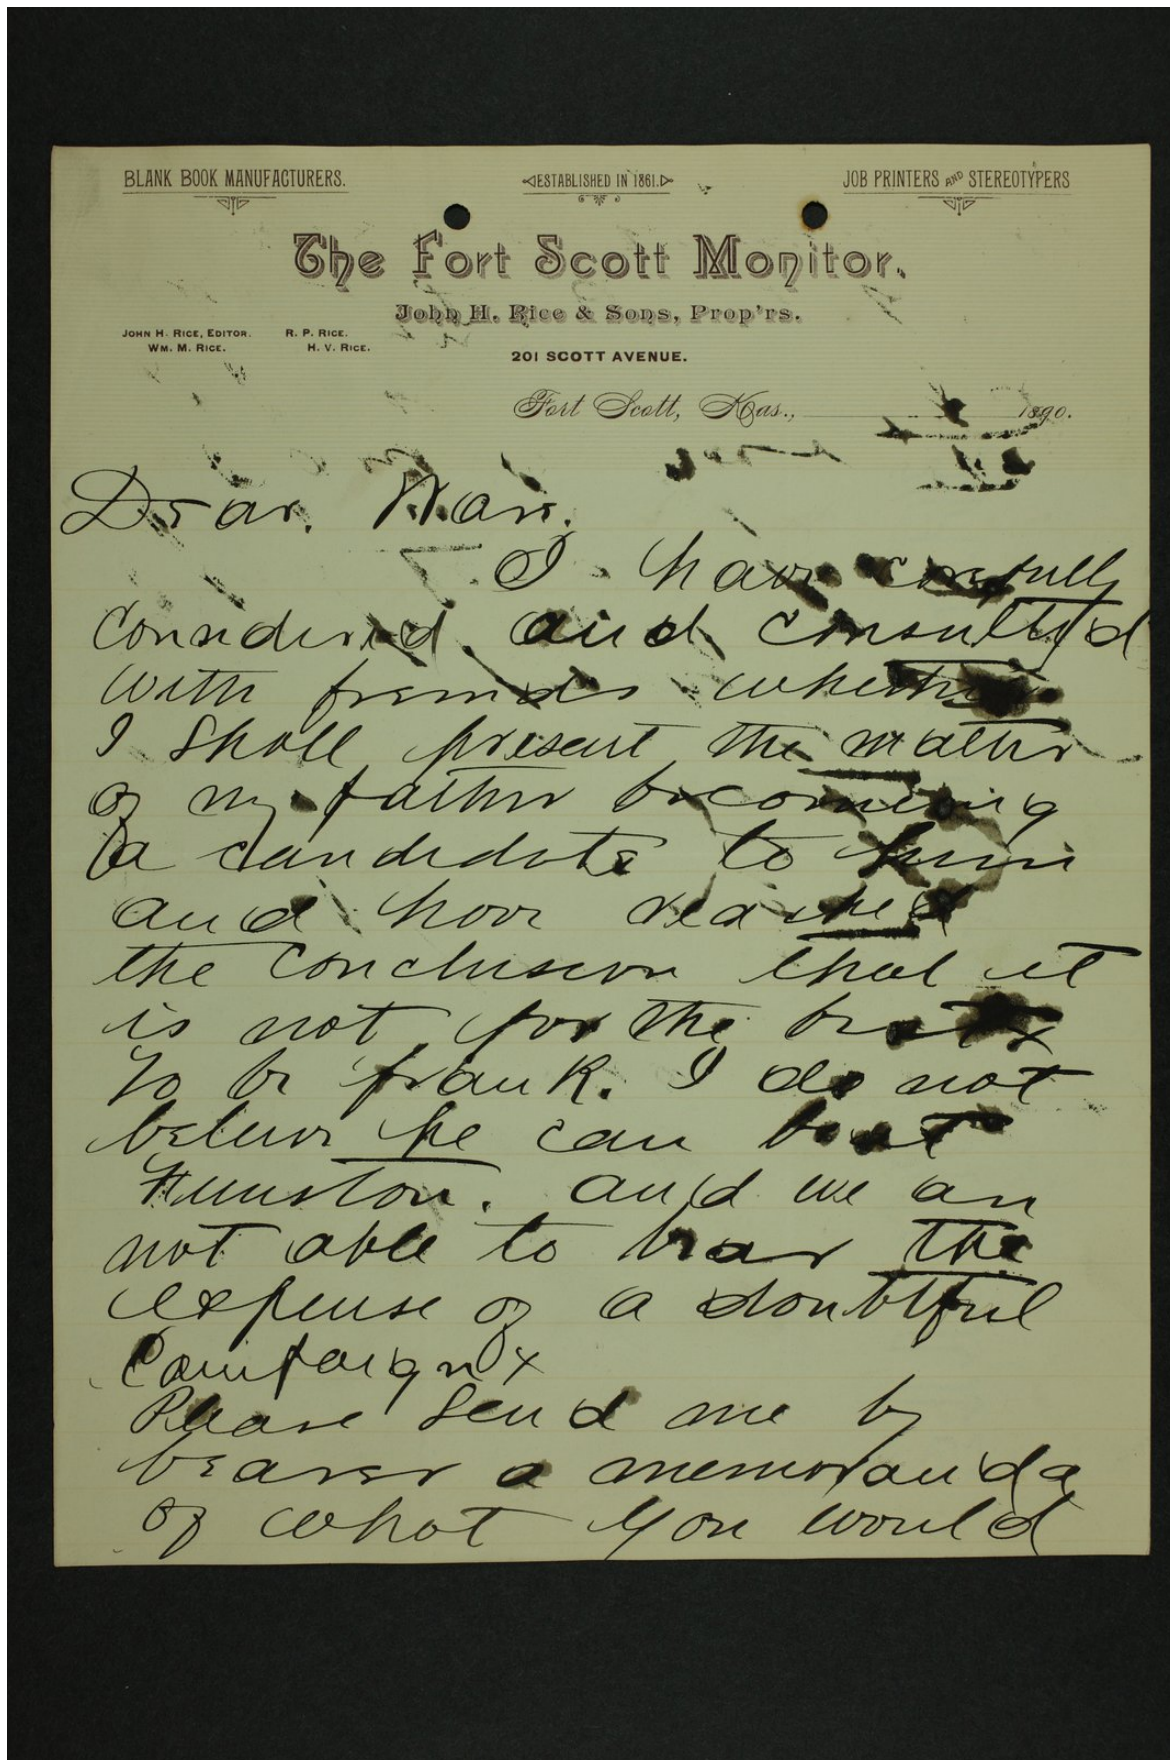 BLANK BOOK MANUFACTURERS. ESTABLISHED IN 1861. JOB PRINTERS AND STEREOTYPERS
The Fort Scott Monitor.
John H. Rice & Sons, Prop'rs.
JOHN H. RICE, EDITOR. R. P. RICE.
WM. M. RICE. H. V. RICE.
201 SCOTT AVENUE.
Fort Scott, Kas., 1890.
Dear
I have carefully
considered and consulted
with friends whether
I shall present the matter
of my father becoming
a candidate to him
and have reached
the conclusion that it
is not for the best
To be frank. I do not
believe he can beat
Funston. and we are
not able to bear the
expense of a doubtful
campaign x
Please send me by
bearer a memoranda
of what you would